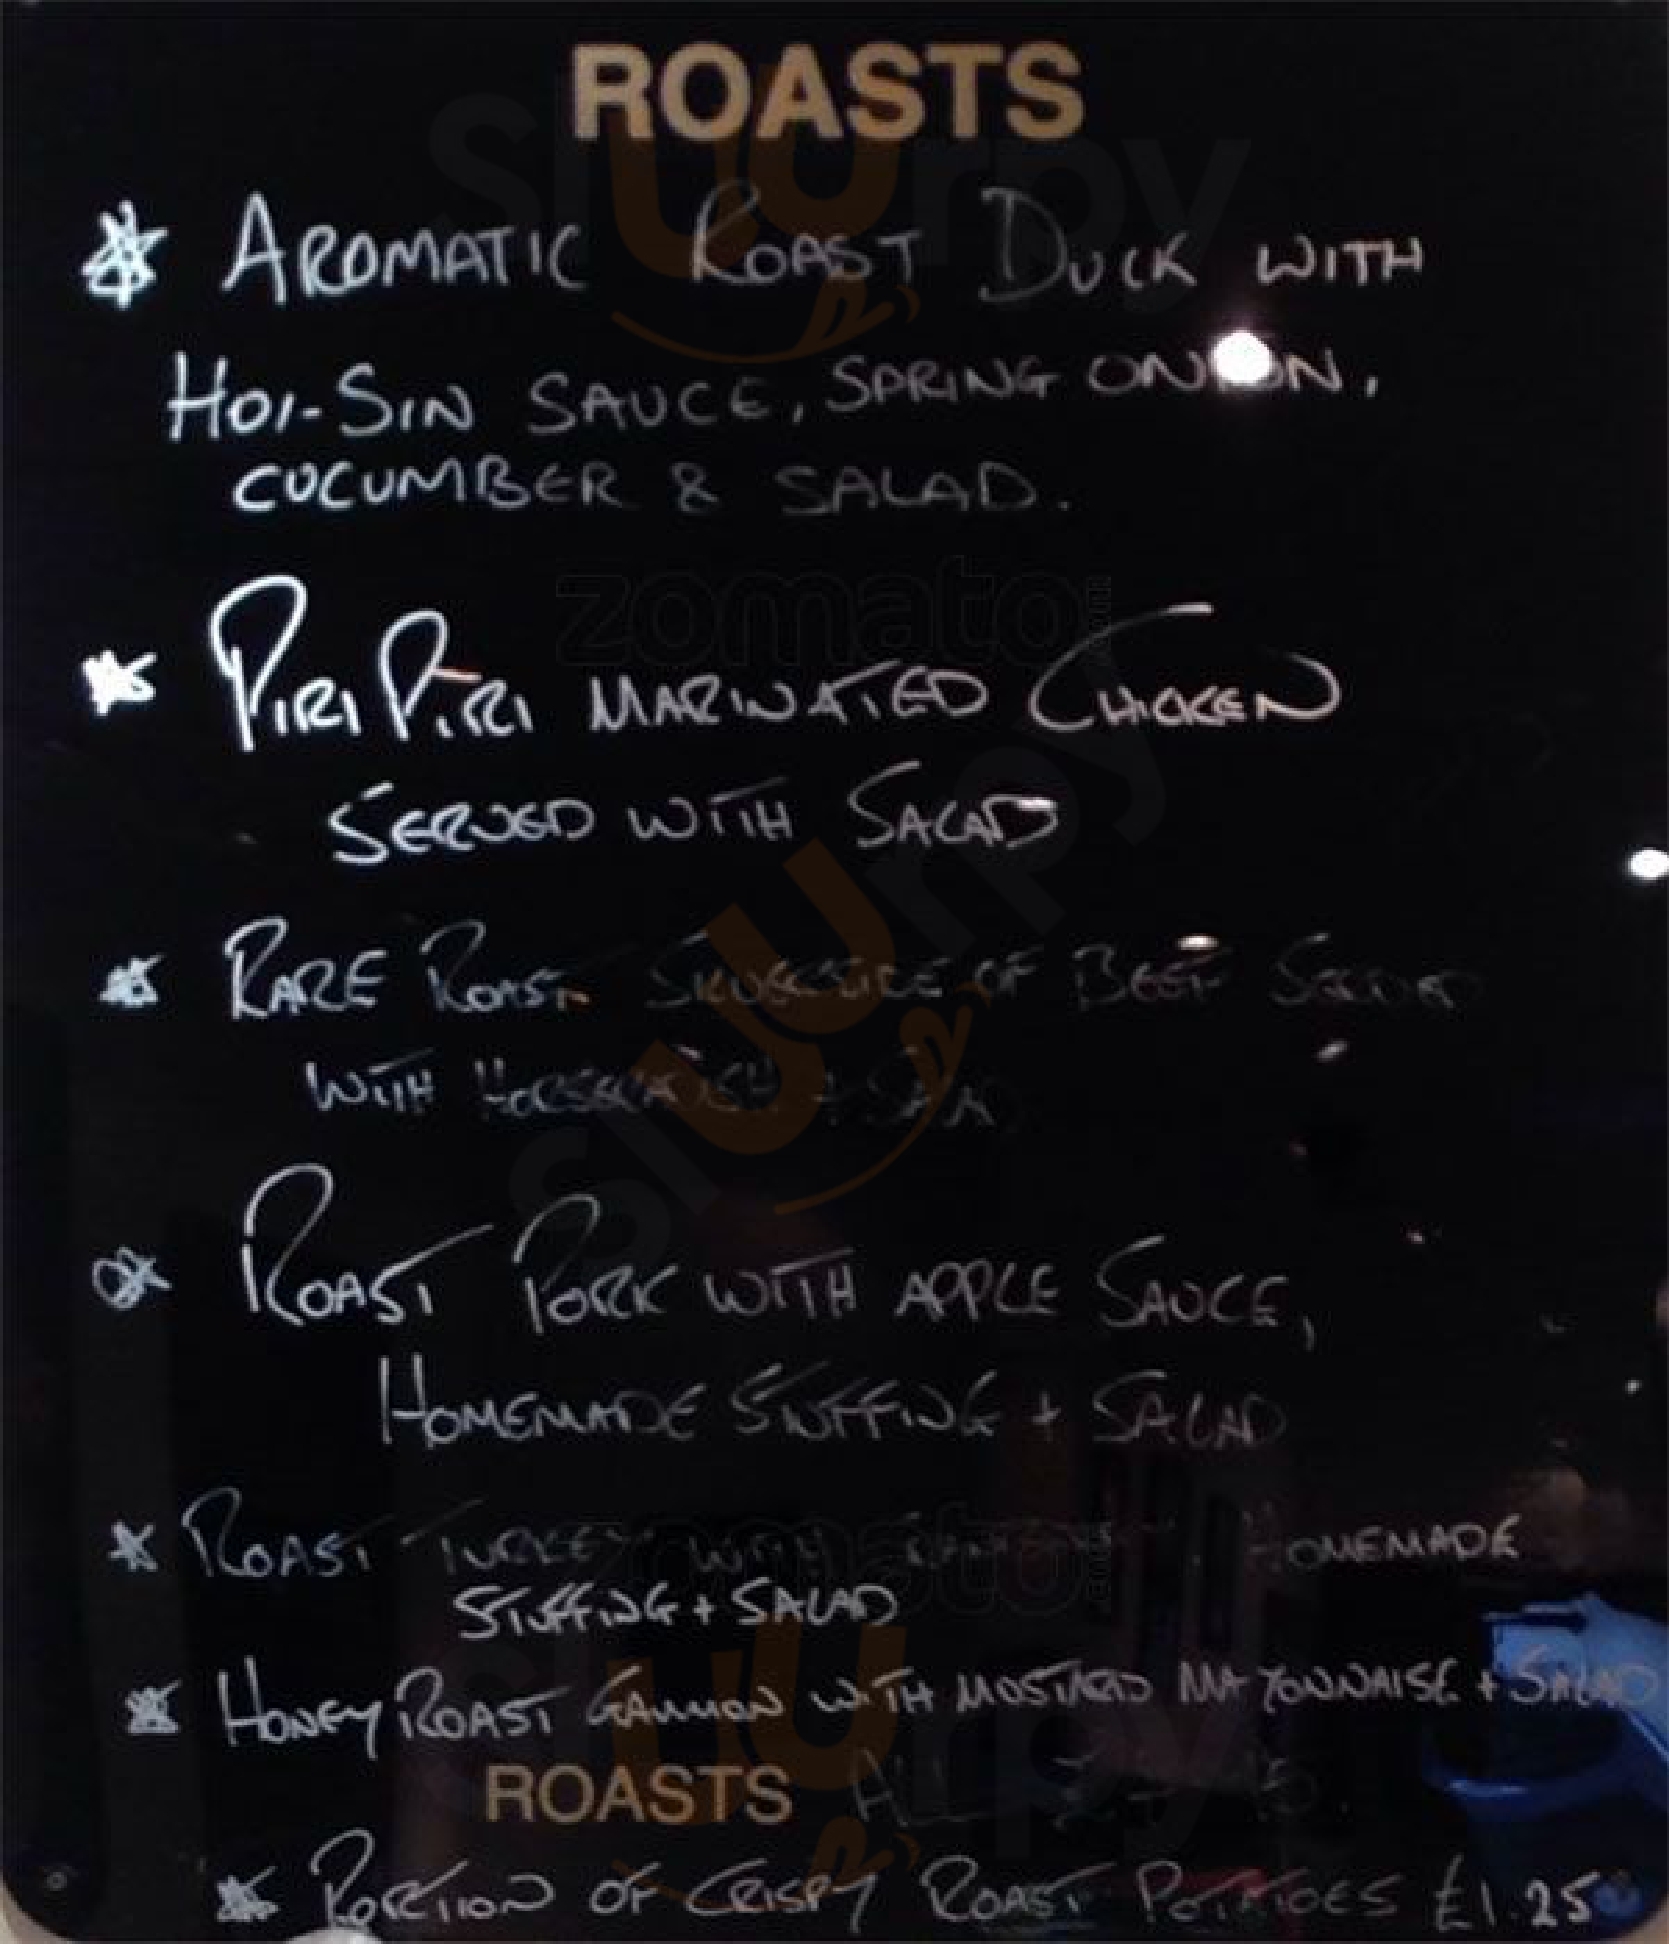 ROASTS
AROMATIC ROAST DUCK WITH
HOI-SIN SAUCE, SPRING ONION,
CUCUMBER & SALAD.
PIRI PIRI MARINATED CHICKEN
SERVED WITH SALAD
RARE ROAST SILVERSIDE OF BEEF SERVED
WITH HORSERADISH + SALAD
ROAST PORK WITH APPLE SAUCE,
HOMEMADE STUFFING + SALAD
ROAST TURKEY WITH HOMEMADE
STUFFING + SALAD
HONEY ROAST GAMMON WITH MUSTARD MAYONNAISE + SALAD
ROASTS ALL
PORTION OF CRISPY ROAST POTATOES £1.25
sluurpy
zomato
sluurpy
zomato
sluurpy